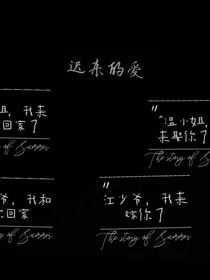 迟来的爱
姐，我来
回家了
y of Summer
"温小姐，
来娶你了
The story of Summer
爷，我和
回家
y of Summer
江少爷，我来
嫁你了
The story of Summer